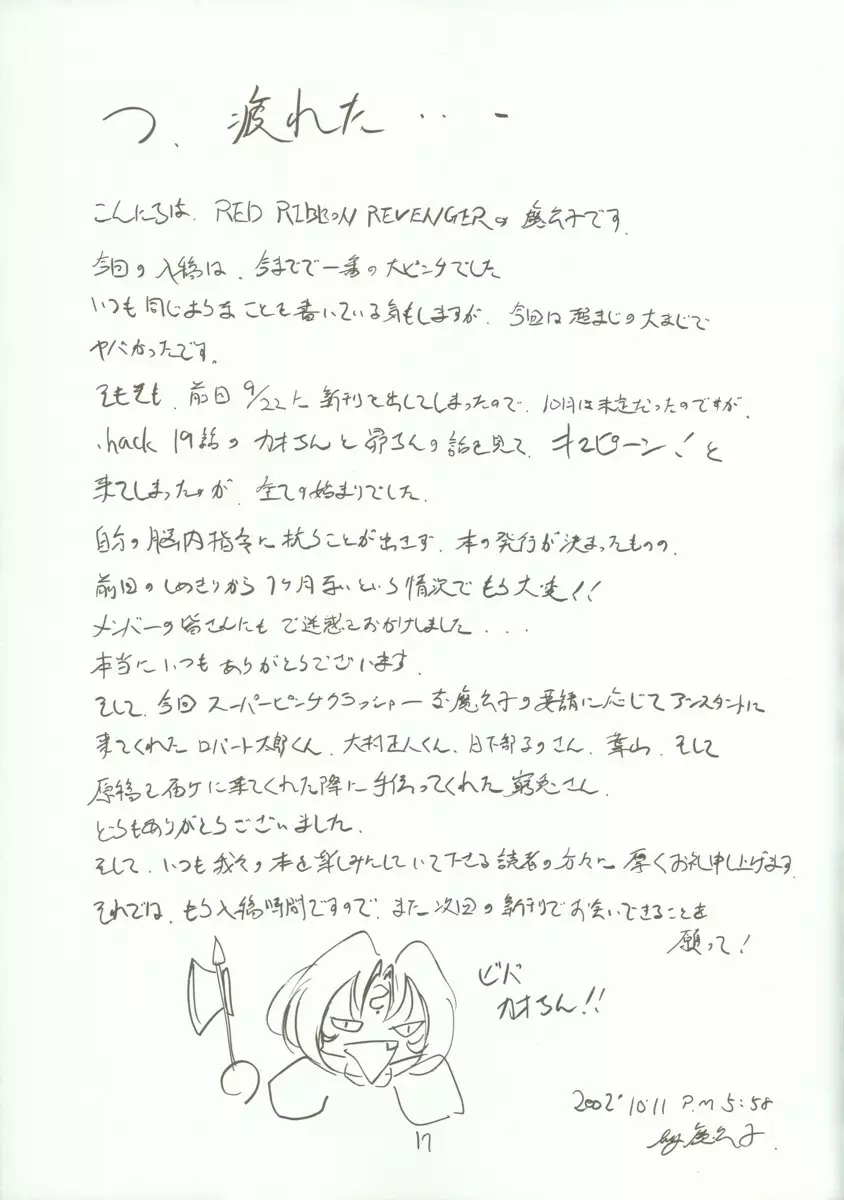 つ、疲れた・・ー
こんにちは、RED RIBBON REVENGERの魔公子です。
今回の入稿は、今までで一番の大ピンチでした
いつも同じようなことを書いている気もしますが、今回は超まじの大まじで
ヤバかったです。
そもそも、前回9/22に新刊を出してしまったので、10月は未定だったのですが、
.hack 19話のカオちんと昴ちんの話を見て、キュピーン!と
来てしまったのが、全ての始まりでした。
自分の脳内指令に抗うことが出きず、本の発行が決まったものの、
前回のしめきりから1ヶ月無いという情況でもう大変!!
メンバーの皆さんにもご迷惑をおかけしました・・・
本当にいつもありがとうございます。
そして、今回スーパーピンチクラッシャーな魔公子の要請に応じてアシスタントに
来てくれたロバート太郎くん、大村正人くん、日下部さん、葉山、そして
原稿を届けに来てくれた際に手伝ってくれた窮兎さん、
どうもありがとうございました。
そして、いつも我々の本を楽しみにしていて下さる読者の方々に厚くお礼申し上げます。
それでは、もう入稿時間ですので、また次回の新刊でお会いできることを
願って!
ビバ
カオちん!!
2002' 10.11 P.M 5:58
by 魔公子
17